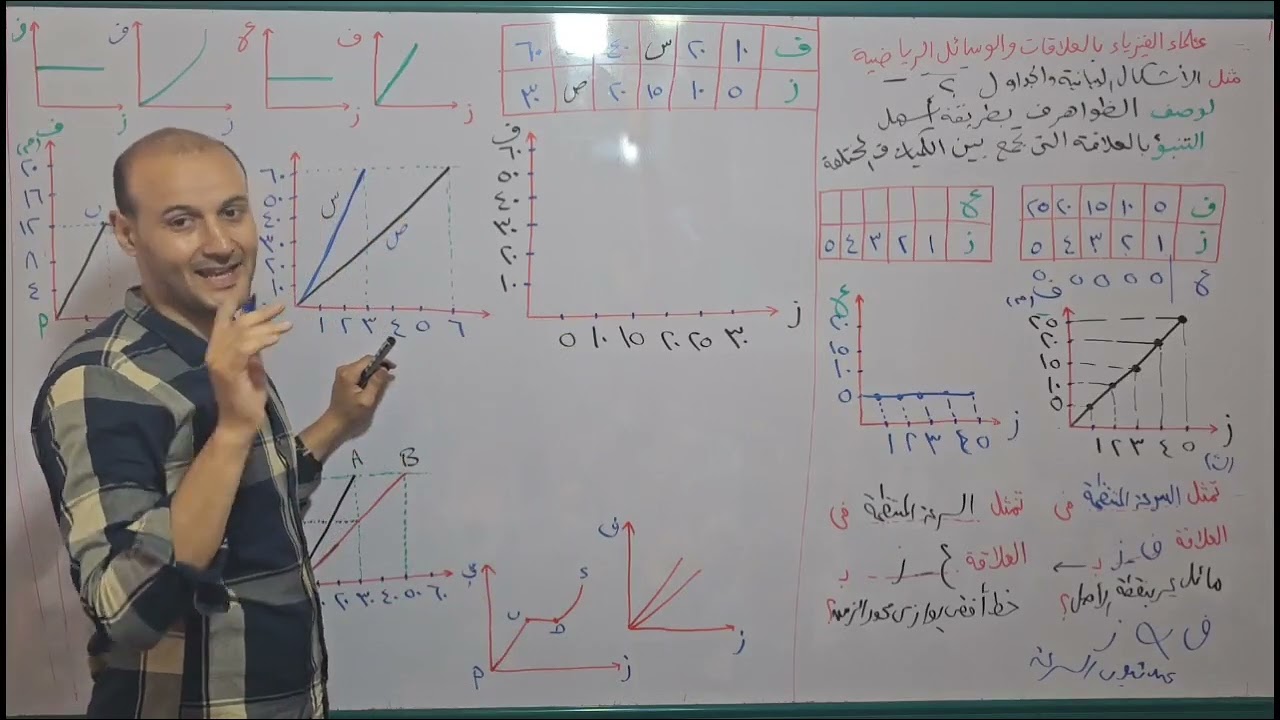 علماء الفيزياء بالعلاقات والوسائل الرياضية
مثل الأشكال البيانية والجداول ؟
لوصف الظواهر بطريقة أسهل
التنبؤ بالعلاقة التى تجمع بين الكميات المختلفة
ف ٥ ١٠ ١٥ ٢٠ ٢٥
ز ١ ٢ ٣ ٤ ٥
ع ٥ ٥ ٥ ٥ ٥
ع
ز ١ ٢ ٣ ٤ ٥
ف (م)
٢٥
٢٠
١٥
١٠
٥
١ ٢ ٣ ٤ ٥
ز
(ث)
ع
٢٠
١٥
١٠
٥
١ ٢ ٣ ٤ ٥ ز
تمثل السرعة المنتظمة فى
العلاقة ف ـ ز بـ
مائل يمر بنقطة الأصل؟
ف ∝ ز
عند ثبوت السرعة
تمثل السرعة المنتظمة فى
العلاقة ع ـ ز بـ
خط أفقى يوازى محور الزمن؟
ف ١٠ ٢٠ س ٤٠ ٦٠
ز ٥ ١٠ ١٥ ٢٠ ص ٣٠
ف
٦٠
٥٠
٤٠
٣٠
٢٠
١٠
٥ ١٠ ١٥ ٢٠ ٢٥ ٣٠
ز
ف ز
ع ز
ف ز
ف ز
٦٠
٥٠
٤٠
٣٠
٢٠
١٠
س
ص
١ ٢ ٣ ٤ ٥ ٦
ف
(م)
٢٠
١٦
١٢
٨
٤
ب
A B
٢٠ ٣٠ ٤٠ ٥٠ ٦٠
ز
ف
ز